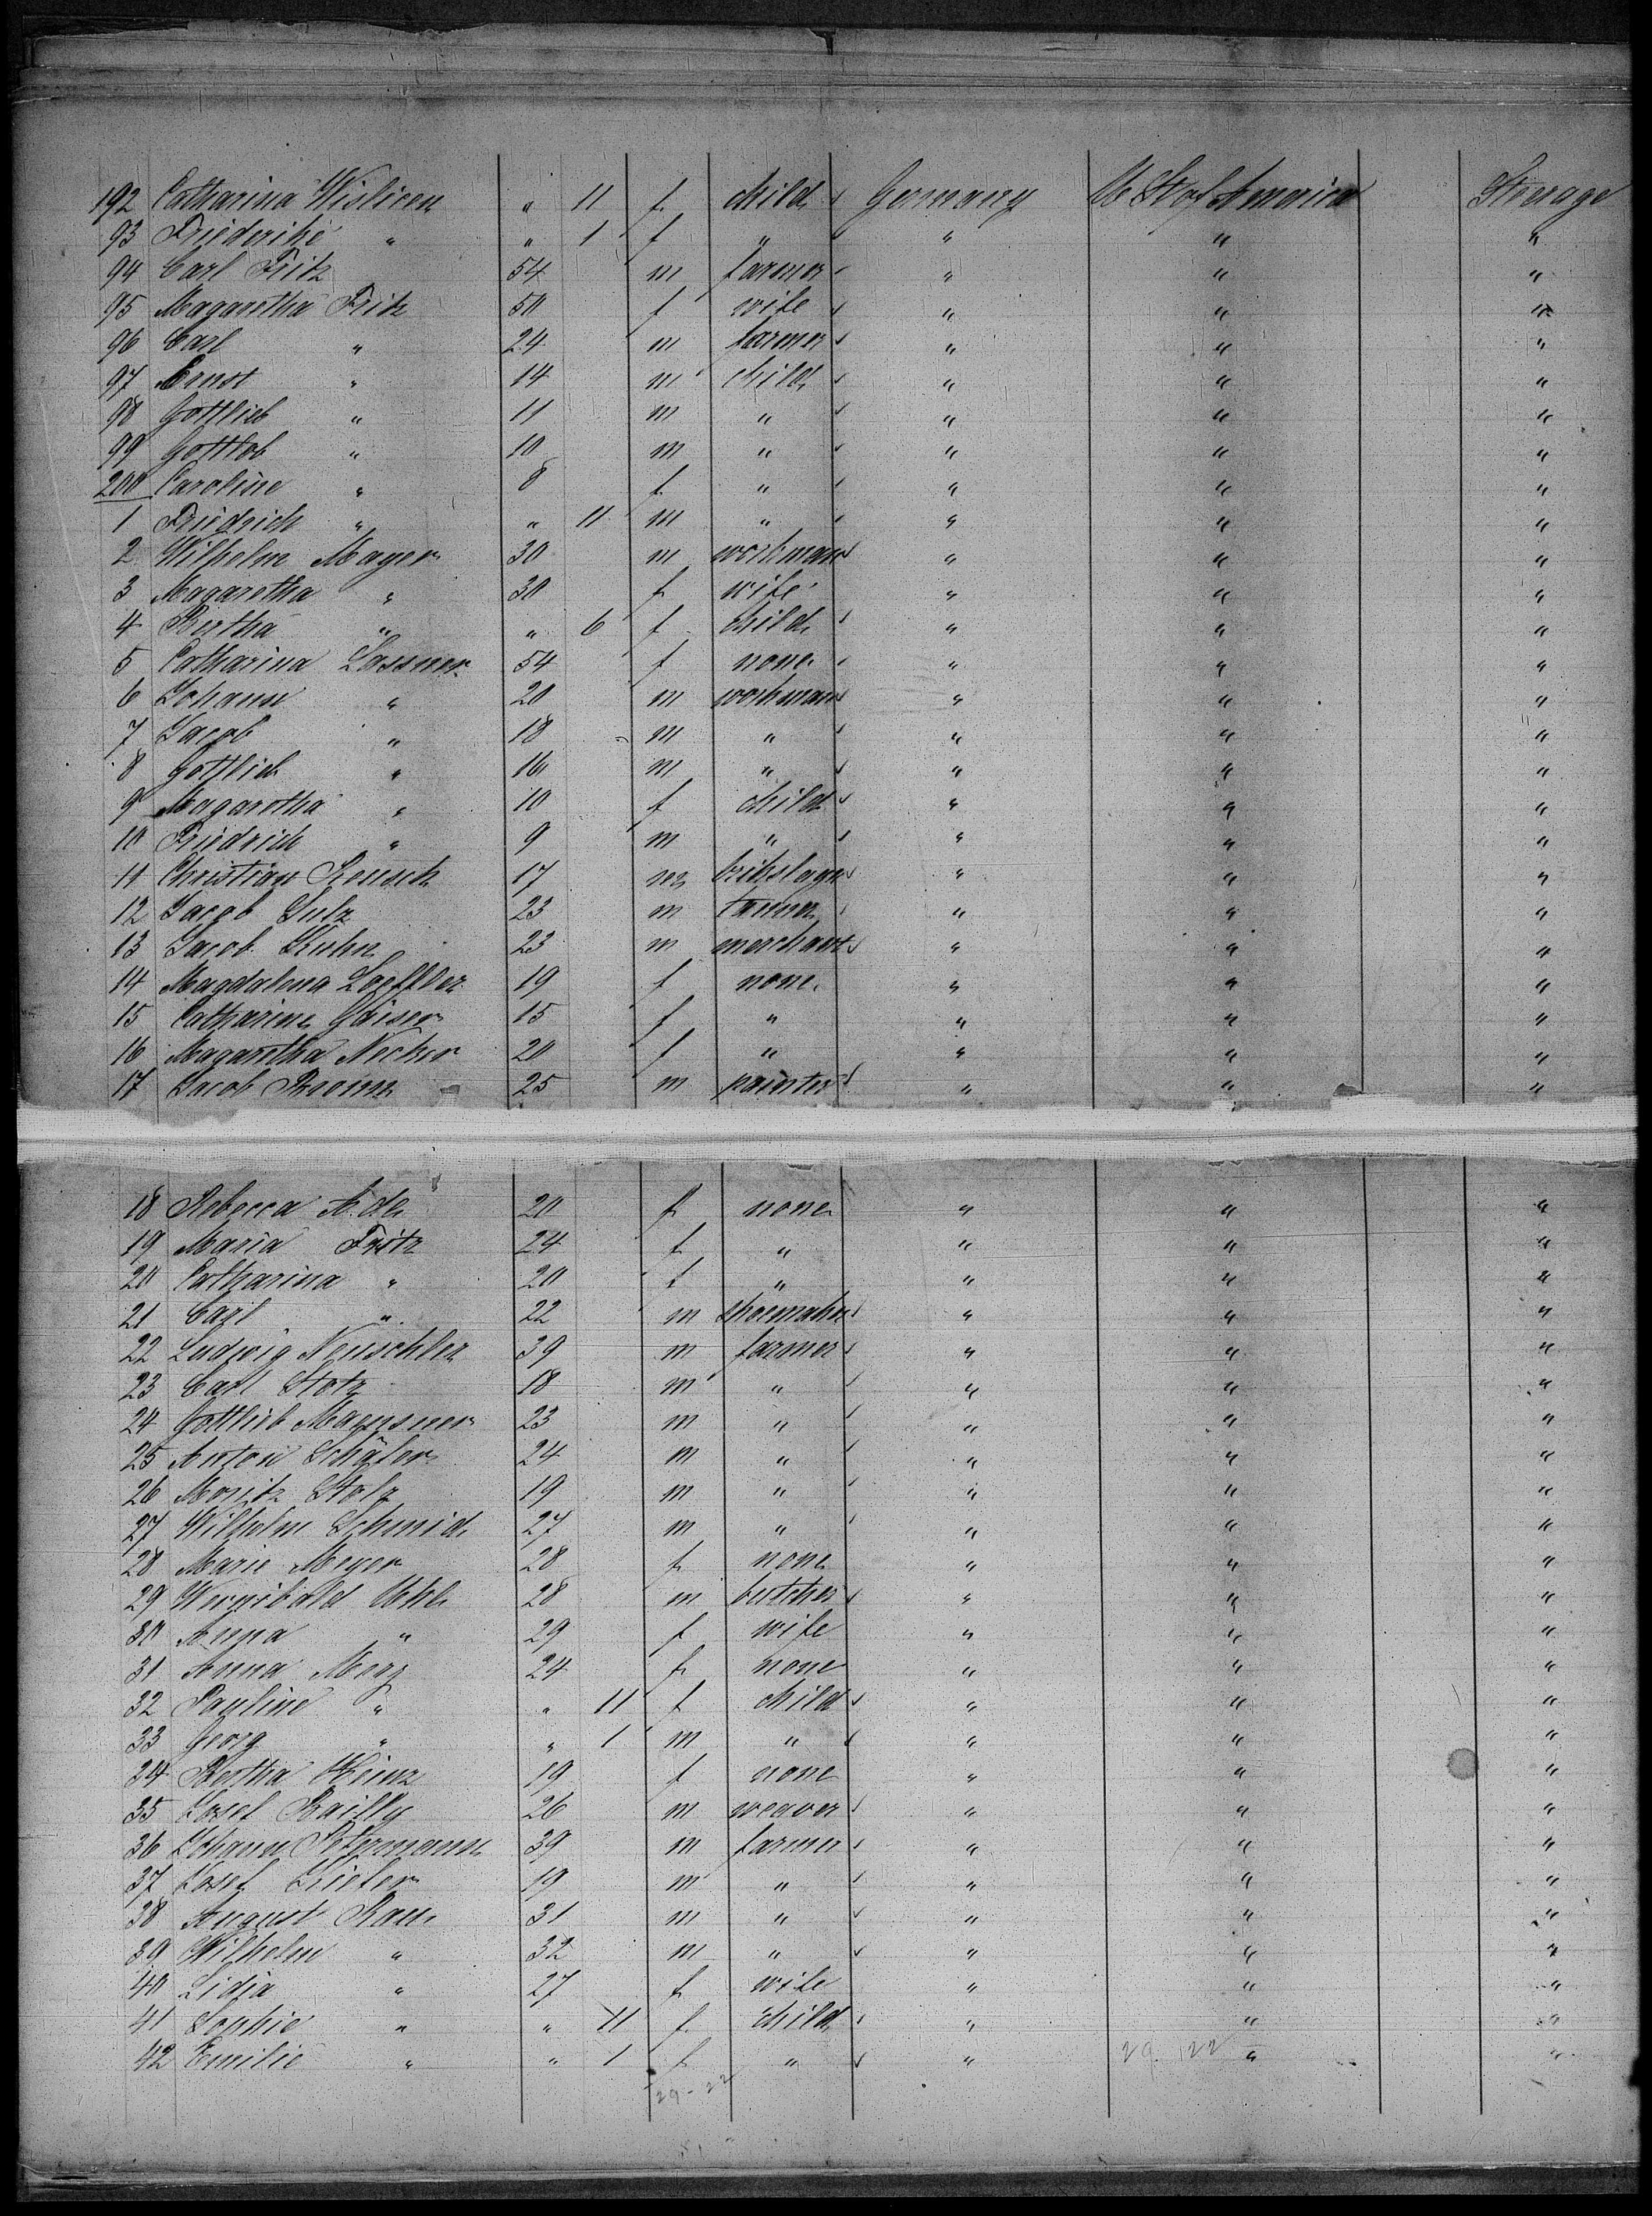 192 Catharina Wislicen " 11 f child Germany U St of America Steerage
93 Friederike " " 1 f " " " "
94 Carl Fritz 54 m farmer " " "
95 Magaretha Fritz 50 f wife " " "
96 Carl " 24 m farmer " " "
97 Ernst " 14 m child " " "
98 Gottlieb " 11 m " " " "
99 Gottlob " 10 m " " " "
200 Caroline " 8 f " " " "
1 Friedrich " " 11 m " " " "
2 Wilhelm Mayer 30 m workman " " "
3 Magaretha " 30 f wife " " "
4 Bertha " " 6 f child " " "
5 Catharina Lassner 54 f none " " "
6 Johann " 20 m workman " " "
7 Jacob " 18 m " " " "
8 Gottlieb " 16 m " " " "
9 Magaretha " 10 f child " " "
10 Friedrich " 9 m " " " "
11 Christian Reusch 17 m " " "
12 Jacob Lutz 23 m tanner " " "
13 Jacob Kuhn 23 m merchant " " "
14 Magdalena Loeffler 19 f none " " "
15 Catharine Gaiser 15 f " " " "
16 Magaretha Necher 20 f " " " "
17 Jacob 25 m painter " " "
18 Rebecca 20 f none " " "
19 Maria Fritz 24 f " " " "
20 Catharina " 20 f " " " "
21 Carl " 22 m shoemaker " " "
22 Ludwig Neuschler 39 m farmer " " "
23 Carl Stotz 18 m " " " "
24 Gottlieb 23 m " " " "
25 Anton Schäfer 24 m " " " "
26 Moritz Stolz 19 m " " " "
27 Wilhelm Schmid 27 m " " " "
28 Marie Meyer 28 f none " " "
29 28 m butcher " " "
30 Anna " 29 f wife " " "
31 Anna Merz 24 f none " " "
32 Pauline " " 11 f child " " "
33 Georg " " 1 m " " " "
34 Bertha Heinz 19 f none " " "
35 Josef Bailly 26 m weaver " " "
36 Johann Petermann 39 m farmer " " "
37 Josef Kiefer 19 m " " " "
38 August Rau 31 m " " " "
39 Wilhelm " 32 m " " " "
40 Lidia " 27 f wife " " "
41 Sophie " " 11 f child " " "
42 Emilie " " 1 f " " 29 22 " "
29-22